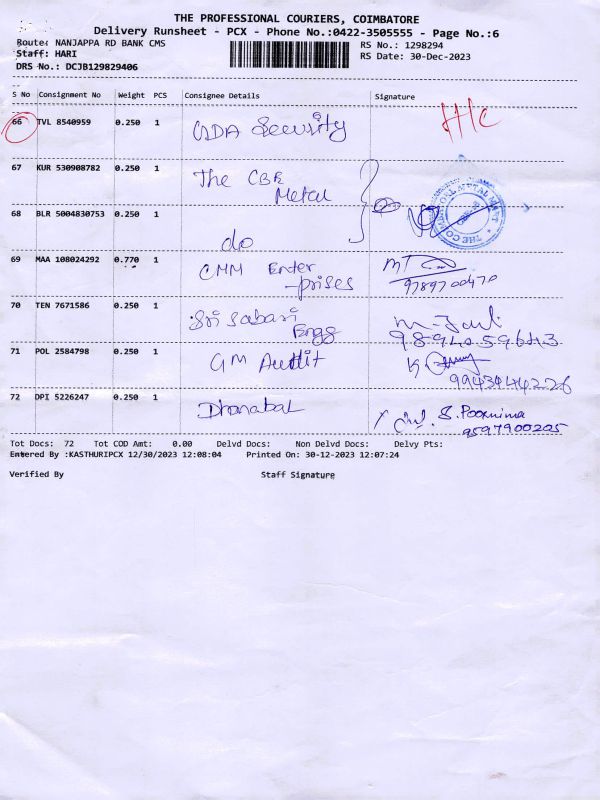 THE PROFESSIONAL COURIERS, COIMBATORE
Delivery Runsheet - PCX - Phone No.:0422-3505555 - Page No.:6
Route: NANJAPPA RD BANK CMS
RS No.: 1298294
Staff: HARI
RS Date: 30-Dec-2023
DRS No.: DCJB129829406
S No Consignment No Weight PCS Consignee Details Signature
66 TVL 8540959 0.250 1 Security H/C
67 KUR 530908782 0.250 1 The CBE
Metal
68 BLR 5004830753 0.250 1 do
69 MAA 108024292 0.770 1 CMM Enter
-prises
9789700470
70 TEN 7671586 0.250 1 Sri Sabari
Engg
98940 59643
71 POL 2584798 0.250 1 GM Audit
9943144226
72 DPI 5226247 0.250 1 Dhanabal
S. Poornima
9597900205
Tot Docs: 72 Tot COD Amt: 0.00 Delvd Docs: Non Delvd Docs: Delvy Pts:
Entered By :KASTHURIPCX 12/30/2023 12:08:04 Printed On: 30-12-2023 12:07:24
Verified By Staff Signature